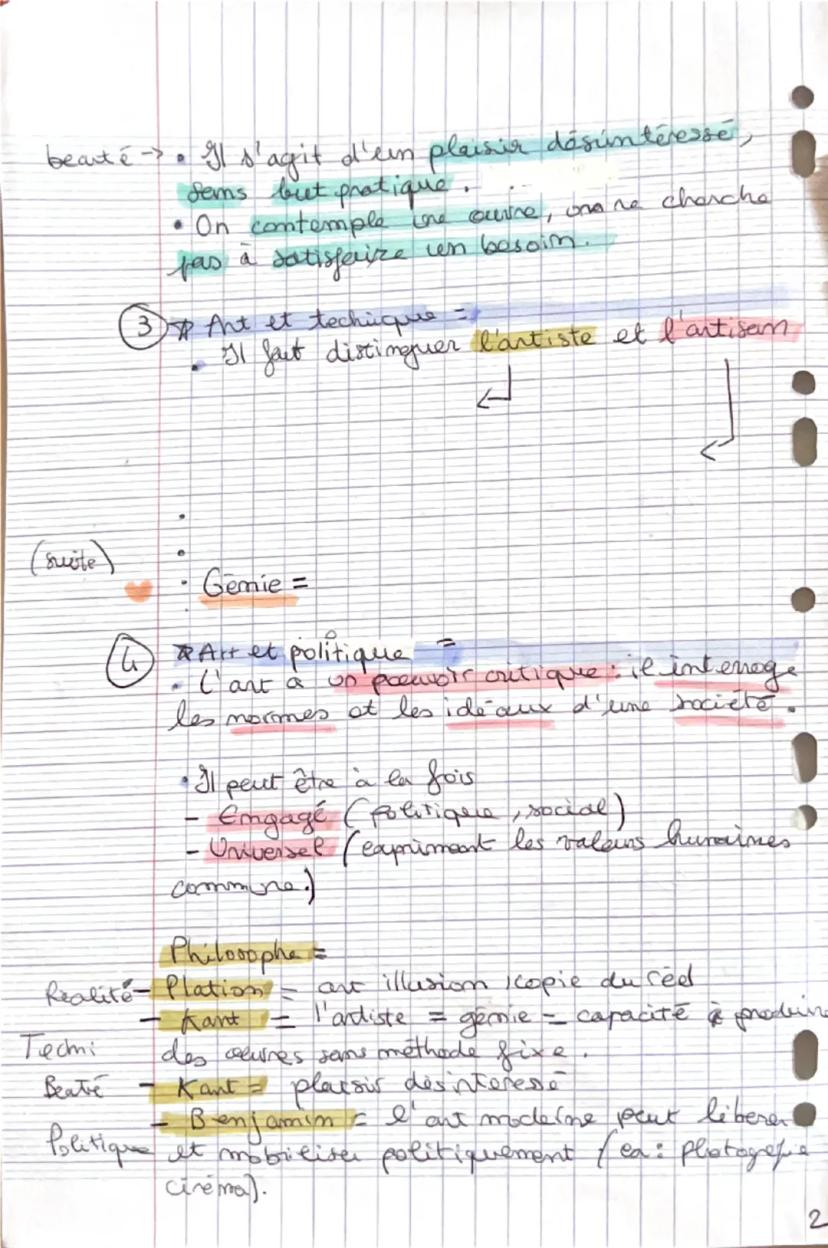 beauté → • Il s'agit d'un plaisir désintéressé,
sans but pratique.
• On contemple une œuvre, on ne cherche
pas à satisfaire un besoin.
③ * Art et technique =
• Il faut distinguer l'artiste et l'artisan
(suite)
• Génie =
④ * Art et politique =
• L'art a un pouvoir critique : il interroge
les normes et les idéaux d'une société.
• Il peut être à la fois
- Engagé (politique, social)
- Universel (exprimant les valeurs humaines
commune.)
Philosophe =
Réalité - Plation = art illusion, copie du réel
- Kant = l'artiste = génie = capacité à produire
Techni des œuvres sans méthode fixe.
Beaté - Kant = plaisir désintéressé
- Benjamin = l'art moderne peut libérer
Politique et mobiliser politiquement (ex : photografie
cinéma).
2